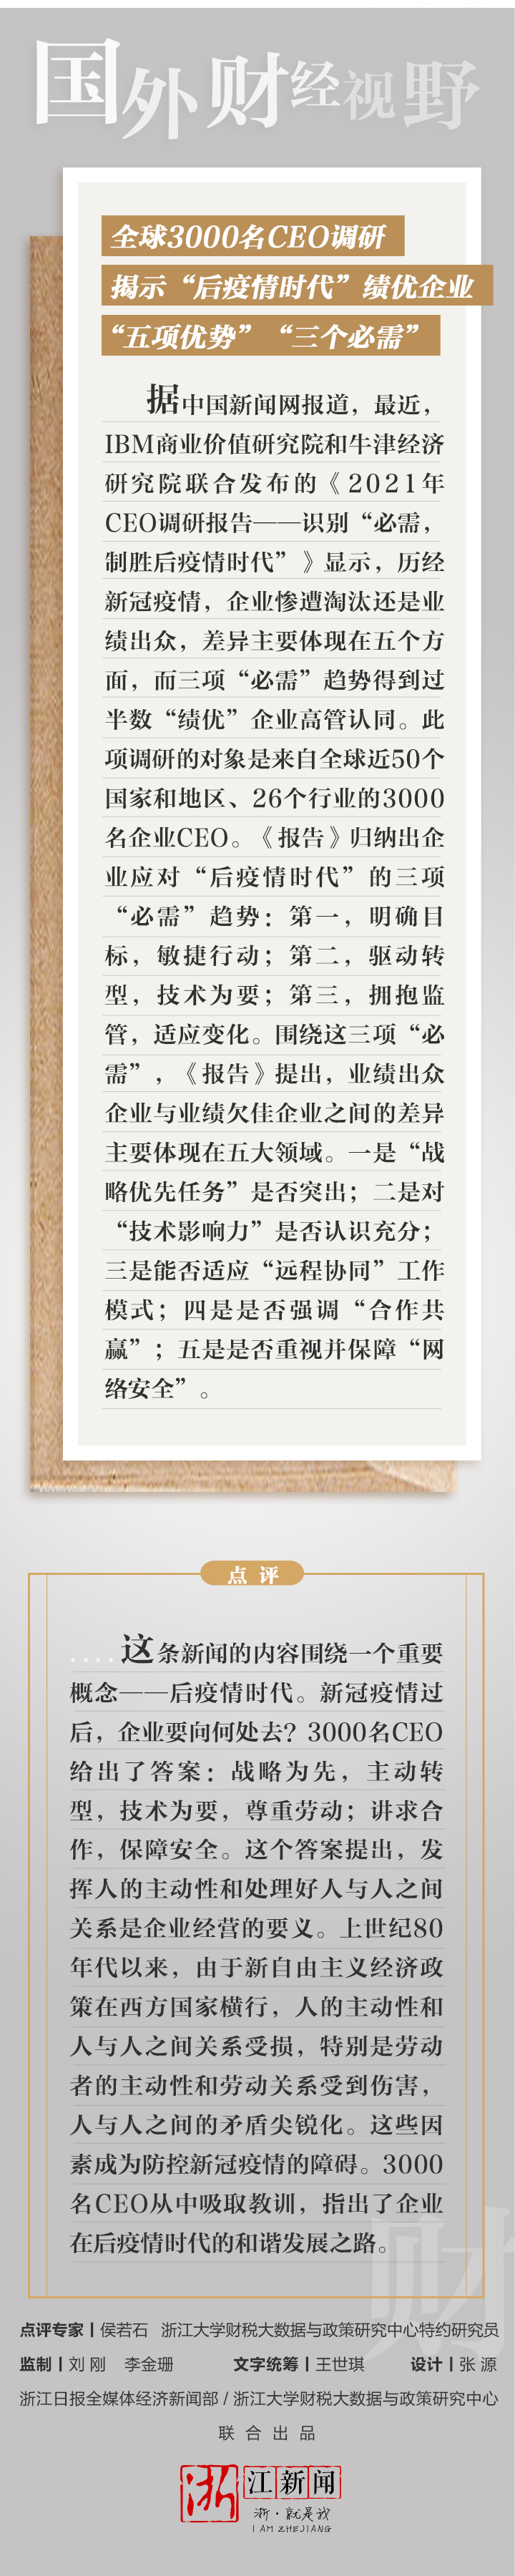 国外财经视野
全球3000名CEO调研
揭示“后疫情时代”绩优企业
“五项优势”“三个必需”
据中国新闻网报道，最近，
IBM商业价值研究院和牛津经济
研究院联合发布的《2021年
CEO调研报告——识别“必需，
制胜后疫情时代”》显示，历经
新冠疫情，企业惨遭淘汰还是业
绩出众，差异主要体现在五个方
面，而三项“必需”趋势得到过
半数“绩优”企业高管认同。此
项调研的对象是来自全球近50个
国家和地区、26个行业的3000
名企业CEO。《报告》归纳出企
业应对“后疫情时代”的三项
“必需”趋势：第一，明确目
标，敏捷行动；第二，驱动转
型，技术为要；第三，拥抱监
管，适应变化。围绕这三项“必
需”，《报告》提出，业绩出众
企业与业绩欠佳企业之间的差异
主要体现在五大领域。一是“战
略优先任务”是否突出；二是对
“技术影响力”是否认识充分；
三是能否适应“远程协同”工作
模式；四是是否强调“合作共
赢”；五是是否重视并保障“网
络安全”。
点评
这条新闻的内容围绕一个重要
概念——后疫情时代。新冠疫情过
后，企业要向何处去？3000名CEO
给出了答案：战略为先，主动转
型，技术为要，尊重劳动；讲求合
作，保障安全。这个答案提出，发
挥人的主动性和处理好人与人之间
关系是企业经营的要义。上世纪80
年代以来，由于新自由主义经济政
策在西方国家横行，人的主动性和
人与人之间关系受损，特别是劳动
者的主动性和劳动关系受到伤害，
人与人之间的矛盾尖锐化。这些因
素成为防控新冠疫情的障碍。3000
名CEO从中吸取教训，指出了企业
在后疫情时代的和谐发展之路。
财
点评专家｜侯若石 浙江大学财税大数据与政策研究中心特约研究员
监制｜刘 刚 李金珊 文字统筹｜王世琪 设计｜张 源
浙江日报全媒体经济新闻部 / 浙江大学财税大数据与政策研究中心
联合出品
浙江新闻
浙·就是我
I AM ZHEJIANG